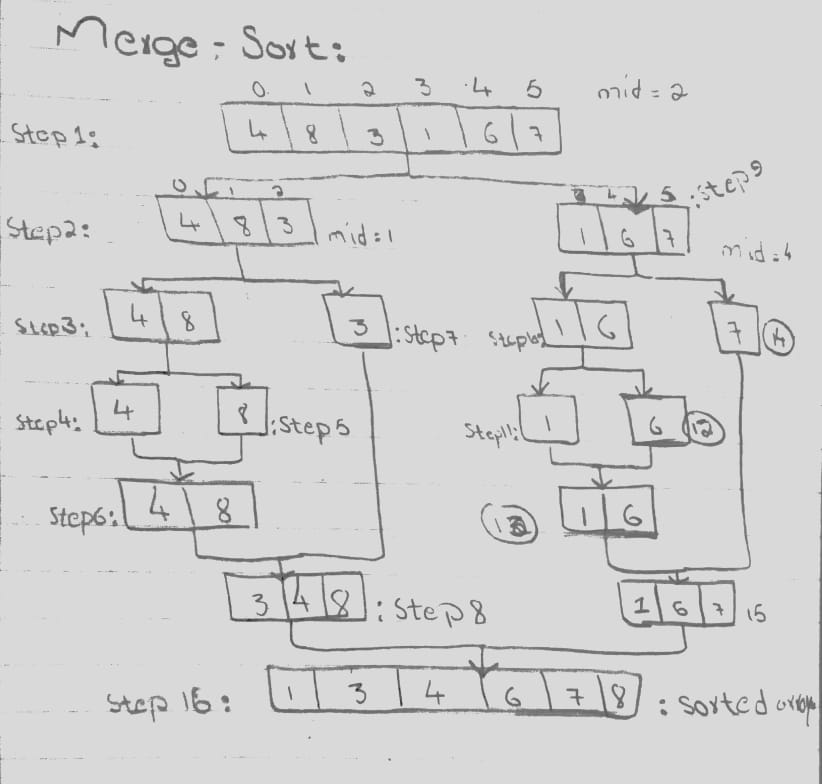 Merge - Sort:
0 1 2 3 4 5 mid = 2
Step 1: 4 8 3 1 6 7
0 1 2 4 5 :Step 9
Step2: 4 8 3 mid=1 1 6 7 mid=4
Step3: 4 8 3 :Step7 1 6 7 14
Step4: 4 8 :Step5 Step11: 1 6 12
Step6: 4 8 13 1 6
3 4 8 : Step 8 1 6 7 15
Step 16: 1 3 4 6 7 8 : sorted array